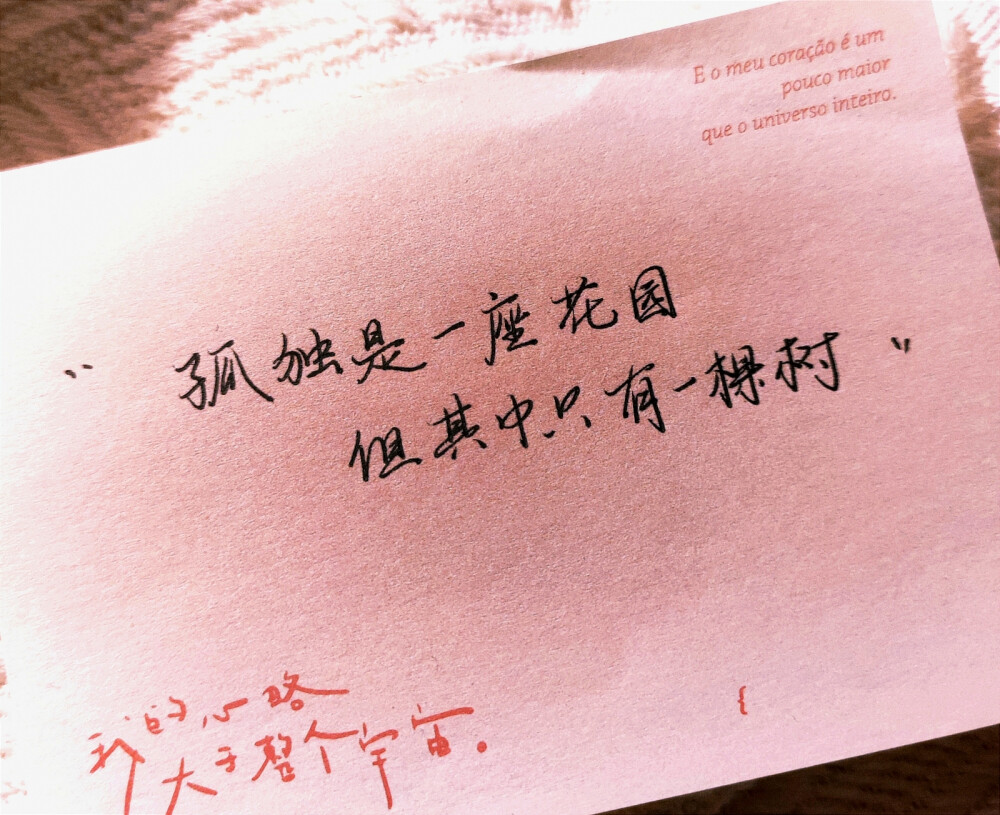 E o meu coração é um
pouco maior
que o universo inteiro.
“ 孤独是一座花园
但其中只有一棵树 ”
我的心略
大于整个宇宙。
{